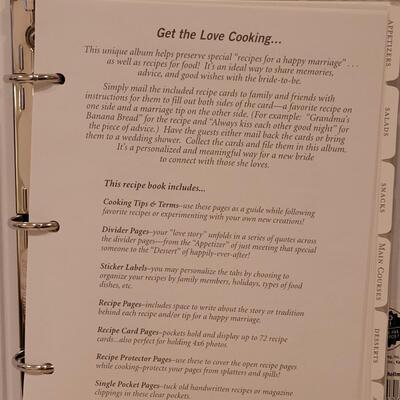 Get the Love Cooking...
This unique album helps preserve special "recipes for a happy marriage" . . .
as well as recipes for food! It's an ideal way to share memories,
advice, and good wishes with the bride-to-be.
Simply mail the included recipe cards to family and friends with
instructions for them to fill out both sides of the card—a favorite recipe on
one side and a marriage tip on the other side. (For example: "Grandma's
Banana Bread" for the recipe and "Always kiss each other good night" for
the piece of advice.) Have the guests either mail back the cards or bring
them to a wedding shower. Collect the cards and file them in this album.
It's a personalized and meaningful way for a new bride
to connect with those she loves.
This recipe book includes...
Cooking Tips & Terms–use these pages as a guide while following
favorite recipes or experimenting with your own new creations!
Divider Pages–your "love story" unfolds in a series of quotes across
the divider pages—from the "Appetizer" of just meeting that special
someone to the "Dessert" of happily-ever-after!
Sticker Labels–you may personalize the tabs by choosing to
organize your recipes by family members, holidays, types of food
dishes, etc.
Recipe Pages–includes space to write about the story or tradition
behind each recipe and/or tip for a happy marriage.
Recipe Card Pages–pockets hold and display up to 72 recipe
cards...also perfect for holding 4x6 photos.
Recipe Protector Pages–use these to cover the open recipe pages
while cooking–protects your pages from splatters and spills!
Single Pocket Pages–tuck old handwritten recipes or magazine
clippings in these clear pockets.
APPETIZERS
SALADS
SNACKS
MAIN COURSES
DESSERTS